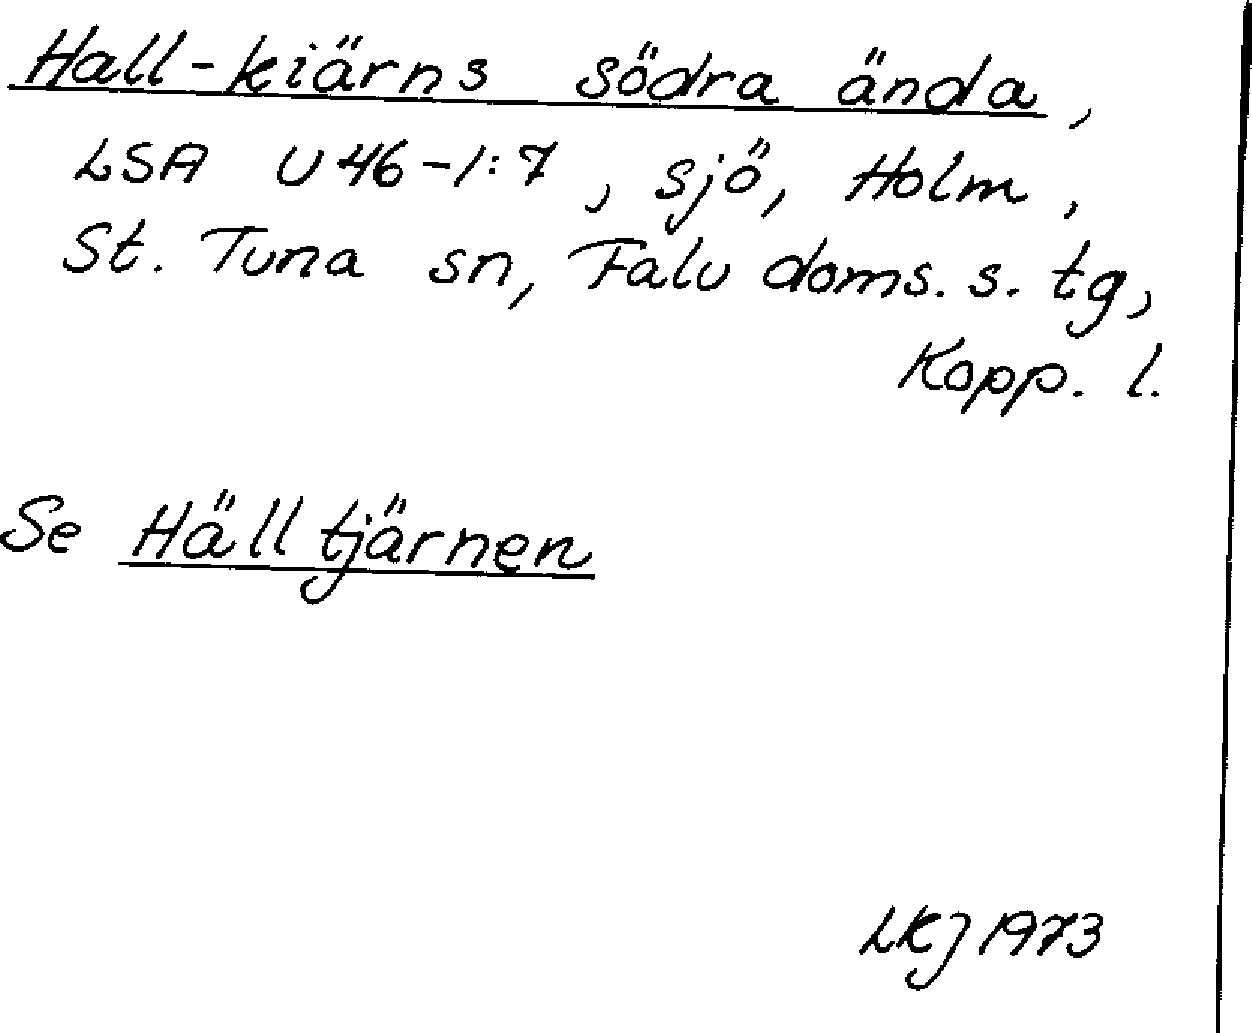 Hall-kiärns södra ända,
LSA U46-1:7, sjö, Holm,
St. Tuna sn, Falu doms. s. tg,
Kopp. l.
Se Hälltjärnen
LKJ 1973